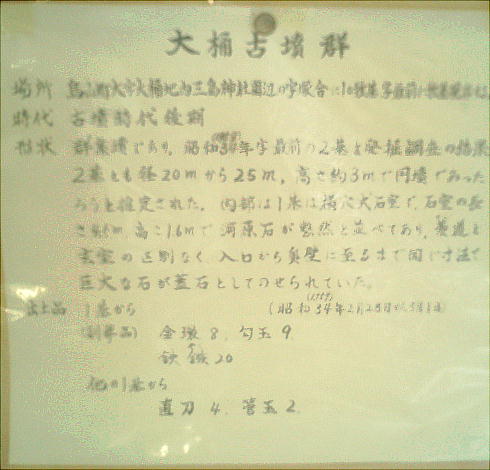 大桶古墳群
場所 烏山町大字大桶地内三島神社周辺の字蟹合に10数基字最前に数基
時代 古墳時代後期
形状 群集墳であり、昭和34年字最前の2基を発掘調査の結果
2基とも径20mから25m、高さ約3mで円墳であった
ろうと推定された。内部は1基は横穴式石室で、石室の長
高さ1.6mで河原石が整然と並べてあり、羨道と
玄室の区別なく、入口から奥壁に至るまで同じ寸法で
巨大な石が蓋石としてのせられていた。
出土品 1基から (昭和34年2月28日から3月
(副葬品) 金環8、勾玉9
鉄鏃20
他の1基から
直刀4、管玉2、